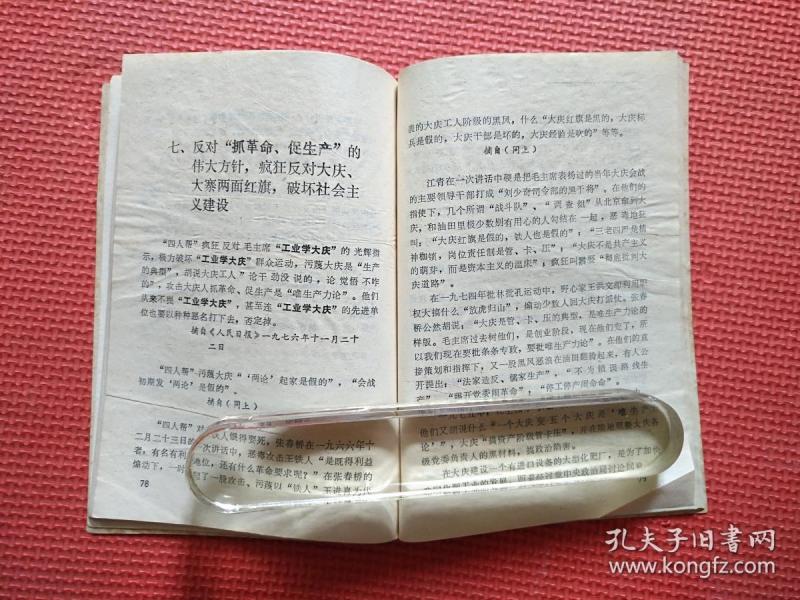 七、反对“抓革命、促生产”的
伟大方针，疯狂反对大庆、
大寨两面红旗，破坏社会主
义建设
“四人帮”疯狂反对毛主席“工业学大庆”的光辉指
示，极力破坏“工业学大庆”群众运动，污蔑大庆是“生产
的典型”，胡说大庆工人“论干劲没说的，论觉悟不咋
的”，攻击大庆人抓革命、促生产是“唯生产力论”。他们
从来不提“工业学大庆”，甚至连“工业学大庆”的先进单
位也要以种种恶名打下去，否定掉。
摘自《人民日报》一九七六年十一月二十
二日
“四人帮”污蔑大庆“‘两论’起家是假的”，“会战
初期发‘两论’是假的”。
摘自（同上）
“四人帮”对铁人恨得要死，张春桥在一九六六年十
二月二十三日的一次讲话中，恶毒攻击王铁人“是既得利益
者，有名有利有地位，还有什么革命要求呢？”在张春桥的
煽动下，一时
起了一股攻击、污蔑以“铁人”王进喜为代
78
表的大庆工人阶级的黑风，什么“大庆红旗是黑的，大庆标
兵是假的，大庆干部是坏的，大庆经验是吹的”等等。
摘自（同上）
江青在一次讲话中硬是把毛主席表扬过的当年大庆会战
的主要领导干部打成“刘少奇司令部的黑干将”。在他们的
指使下，几个所谓“战斗队”、“调查组”从北京拿到大
庆，和油田里极少数别有用心的人勾结在一起，恶毒地狂
叫：“大庆红旗是假的，铁人也是假的”；“三老四严是精
神枷锁，岗位责任制是管、卡、压”；“大庆不是共产主义
的萌芽，而是资本主义的温床”；疯狂叫嚣要“彻底批判大
庆道路”。
在一九七四年批林批孔运动中，野心家王洪文即利用职
权大搞什么“放虎归山”，煽动少数人回大庆打派仗。张春
桥公然胡说：“大庆是管、卡、压的典型，是唯生产力论的
样版。毛主席过去树他们，是创业阶段，现在他们变了，所
以我们现在要批条条专政，要批唯生产力论”。在他们的直
接策划和指挥下，又一股黑风恶浪在油田翻腾起来，有人公
开提出：“法家造反、儒家生产”，“不为错误路线生
产”，“踢开党委闹革命”，“停工停产闹革命”。
一九七五年，
他们又胡说什么“一个大庆变五个大庆是‘唯生产力
论’”，“大庆“搞资产阶级管卡压”，并在暗地里整大庆各
级党委负责人的黑材料，搞政治陷害。
在大庆建设一个有进口设备的大型化肥厂，是为了加快
孔夫子旧书网
www.kongfz.com